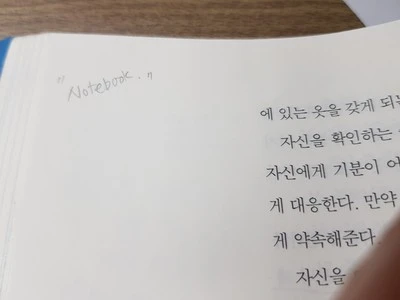 "Notebook."
에 있는 옷을 갖게 되는
자신을 확인하는
자신에게 기분이 어
게 대응한다. 만약
게 약속해준다.
자신을